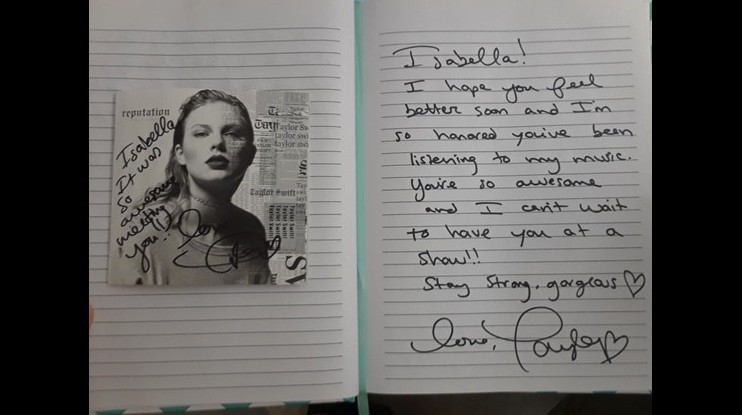 reputation
Isabella
It was
so
awesome
meeting
you!!
Love
Taylor Swift
Taylor Swift
Taylor Swift
Isabella!
I hope you feel
better soon and I'm
so honored you've been
listening to my music.
You're so awesome
and I can't wait
to have you at a
show!!
Stay Strong, gorgeous ♡
love, Taylor ♡